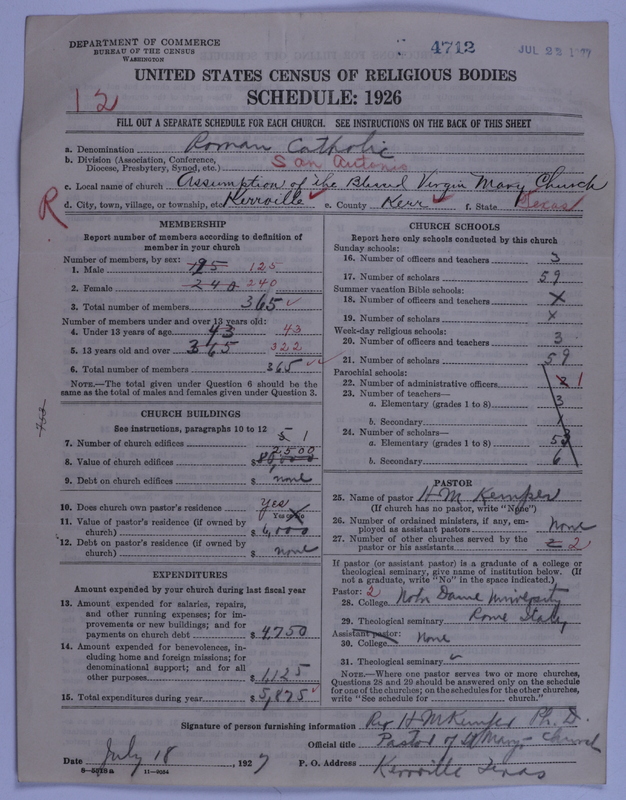 DEPARTMENT OF COMMERCE
BUREAU OF THE CENSUS
WASHINGTON
4712
JUL 22 19
UNITED STATES CENSUS OF RELIGIOUS BODIES
SCHEDULE: 1926
12
FILL OUT A SEPARATE SCHEDULE FOR EACH CHURCH. SEE INSTRUCTIONS ON THE BACK OF THIS SHEET
a. Denomination Roman Catholic
b. Division (Association, Conference, Diocese, Presbytery, Synod, etc.) San Antonio
c. Local name of church Assumption of the Blessed Virgin Mary Church
d. City, town, village, or township, etc. Kerrville e. County Kerr f. State Texas
R
MEMBERSHIP
Report number of members according to definition of member in your church
Number of members, by sex:
1. Male 125
2. Female 240 240
3. Total number of members 365
Number of members under and over 13 years old:
4. Under 13 years of age 43 43
5. 13 years old and over 365 322
6. Total number of members 365
NOTE.—The total given under Question 6 should be the same as the total of males and females given under Question 3.
CHURCH BUILDINGS
See instructions, paragraphs 10 to 12
7. Number of church edifices 5 1
8. Value of church edifices $ 2,500
9. Debt on church edifices $ none
10. Does church own pastor's residence yes
Yes or No
11. Value of pastor's residence (if owned by church) $ 6,000
12. Debt on pastor's residence (if owned by church) $ none
EXPENDITURES
Amount expended by your church during last fiscal year
13. Amount expended for salaries, repairs, and other running expenses; for improvements or new buildings; and for payments on church debt $ 4,750
14. Amount expended for benevolences, including home and foreign missions; for denominational support; and for all other purposes $ 1,125
15. Total expenditures during year $ 5,875
CHURCH SCHOOLS
Report here only schools conducted by this church
Sunday schools:
16. Number of officers and teachers 3
17. Number of scholars 59
Summer vacation Bible schools:
18. Number of officers and teachers x
19. Number of scholars x
Week-day religious schools:
20. Number of officers and teachers 3
21. Number of scholars 59
Parochial schools:
22. Number of administrative officers 2 1
23. Number of teachers—
a. Elementary (grades 1 to 8) 3
b. Secondary
24. Number of scholars—
a. Elementary (grades 1 to 8) 53
b. Secondary 6
PASTOR
25. Name of pastor H M Kemper
(If church has no pastor, write "None")
26. Number of ordained ministers, if any, employed as assistant pastors None
27. Number of other churches served by the pastor or his assistants 2 2
If pastor (or assistant pastor) is a graduate of a college or theological seminary, give name of institution below. (If not a graduate, write "No" in the space indicated.)
Pastor: 2
28. College Notre Dame University
29. Theological seminary Rome Italy
Assistant pastor:
30. College None
31. Theological seminary
NOTE.—Where one pastor serves two or more churches, Questions 28 and 29 should be answered only on the schedule for one of the churches; on the schedules for the other churches, write "See schedule for church."
Signature of person furnishing information Rev H M Kemper Ph. D.
Official title Pastor of St Mary's Church
Date July 18, 1927 P. O. Address Kerrville Texas
8—5518a 11—9034